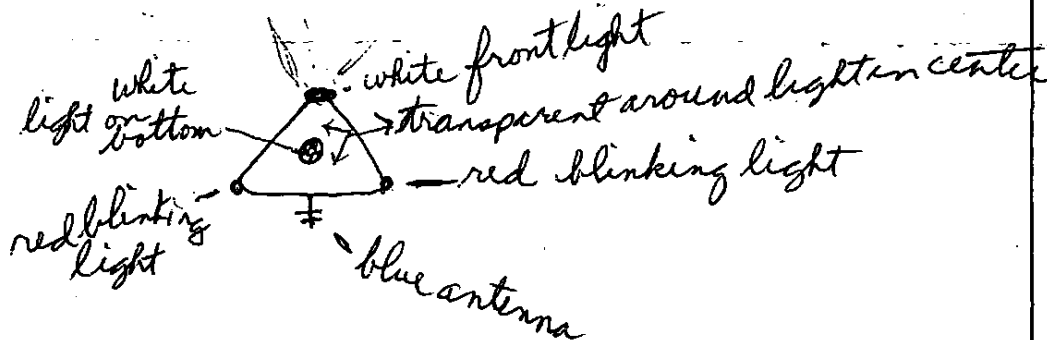 white front light
white
light on
bottom
transparent around light in center
red blinking light
red blinking
light
blue antenna